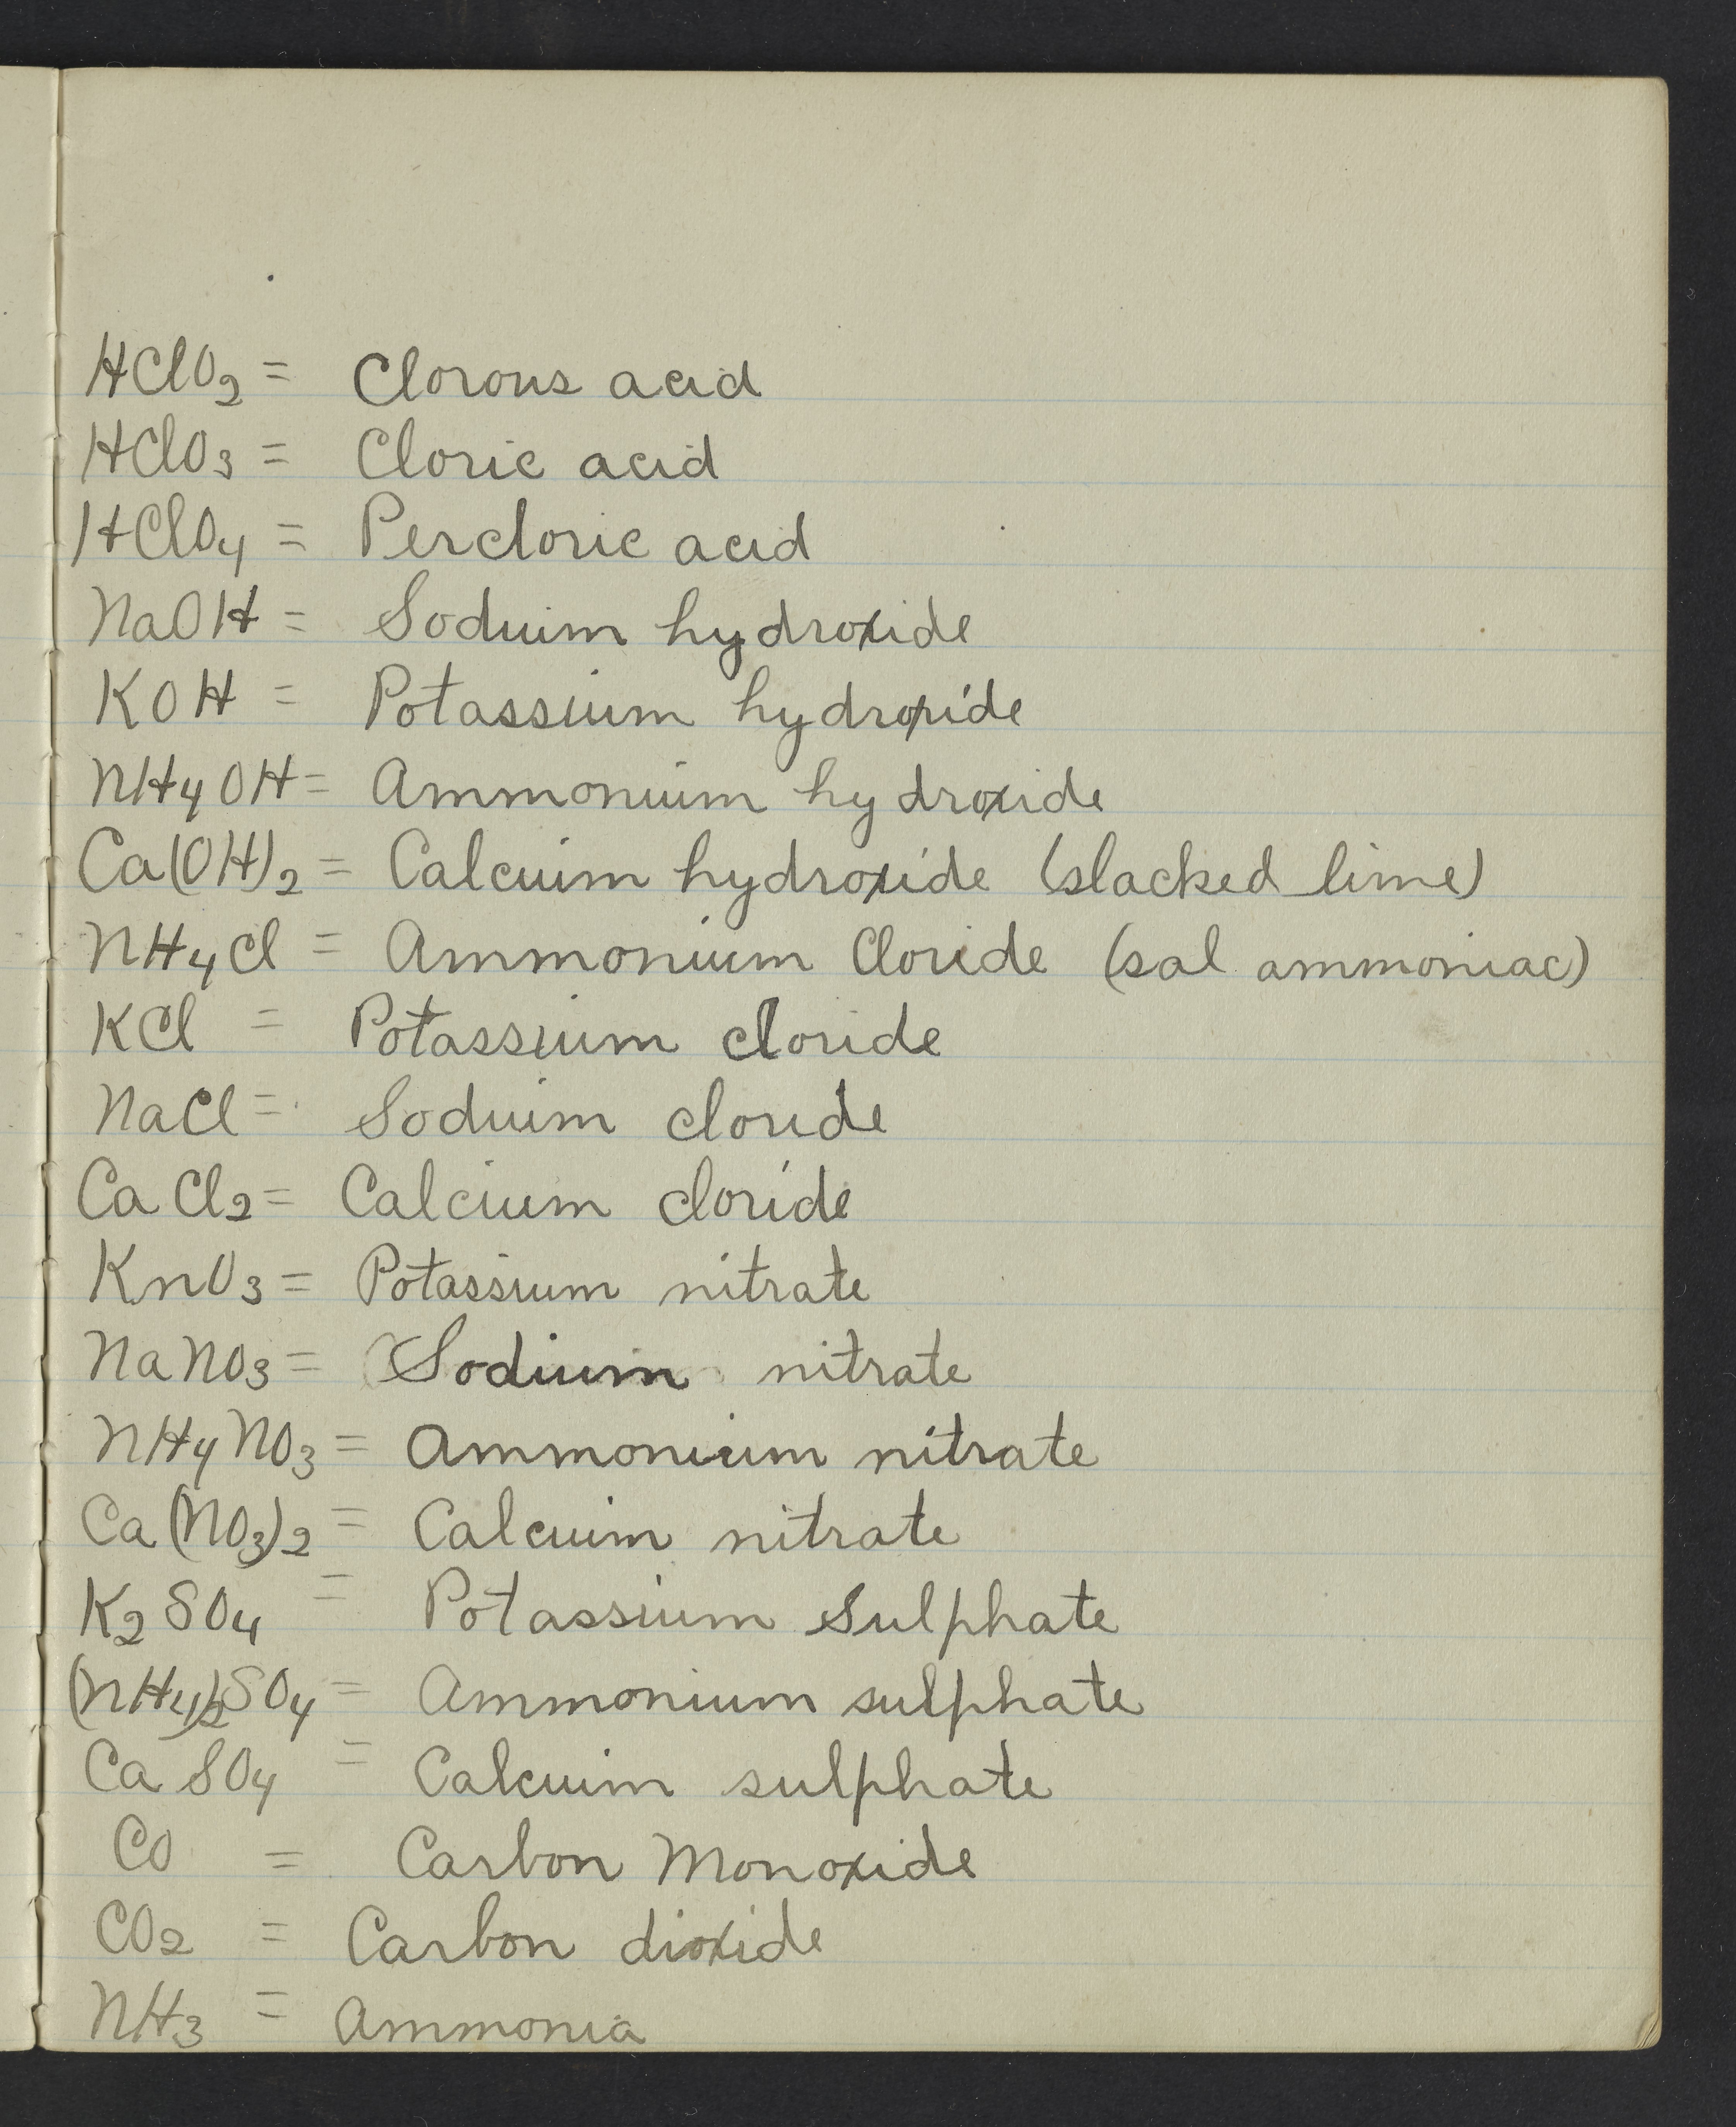 HClO₂ = Clorous acid
HClO₃ = Cloric acid
HClO₄ = Percloric acid
NaOH = Sodium hydroxide
KOH = Potassium hydroxide
NH₄OH = Ammonium hydroxide
Ca(OH)₂ = Calcium hydroxide (slacked lime)
NH₄Cl = Ammonium Cloride (sal ammoniac)
KCl = Potassium cloride
NaCl = Sodium cloride
CaCl₂ = Calcium cloride
KNO₃ = Potassium nitrate
NaNO₃ = Sodium nitrate
NH₄NO₃ = Ammonium nitrate
Ca(NO₃)₂ = Calcium nitrate
K₂SO₄ = Potassium Sulphate
(NH₄)₂SO₄ = Ammonium sulphate
CaSO₄ = Calcium sulphate
CO = Carbon Monoxide
CO₂ = Carbon dioxide
NH₃ = Ammonia